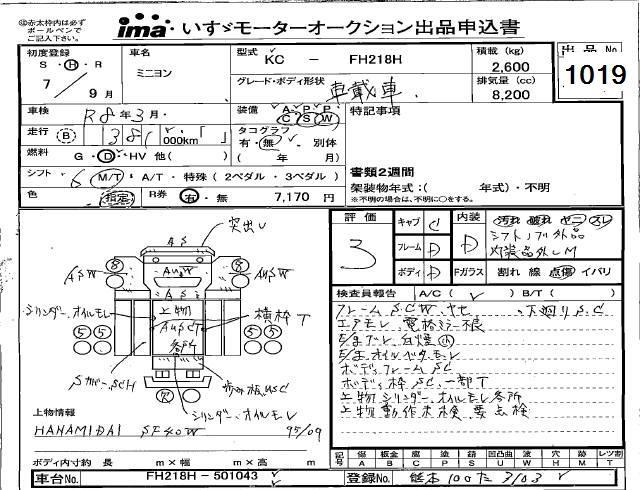 ㊟赤太枠内は必ず
ボールペンで
ご記入下さい。
ima いすゞモーターオークション出品申込書
初度登録
S・H・R
7/9月
車名
ミニヨン
型式
KC - FH218H
グレード・ボディ形状
車載車
積載 (kg)
2,600
排気量 (cc)
8,200
出品No.
1019
車検
R8年3月
装備
A P P
C S W
特記事項
走行 B 381 000km「 」
タコグラフ
有・無 別体
( 年 月)
燃料 G・D・HV 他( )
シフト 6 M/T・A/T・特殊(2ペダル・3ペダル)
書類2週間
架装物年式:( 年式)・不明
※不明の場合は、不明に○をする。
色 (指定) R券 有・無 7,170円
評価
3
キャブ C
フレーム D
ボディ D
内装 D
汚れ 破れ ヤニ スレ
シフトノブ外品
灯装品外しM
Fガラス 割れ 線 点傷 イパリ
検査員報告 A/C( ) B/T( )
フレームSCW 下廻りSC
エアモレ、電格ミラー不良
E/オイルヤケモレ
ボディフレームSC
ボディ枠SC、一部T
上物シリンダー、オイルモレ各所
上物動作未検、要点検
AS
突出し
8
8
ASW
AuSW
AuW
AS
シリンダー、オイルモレ
上物
AUSCT
各所
横枠T
5 5
5 5
Sカバー、SCH
歩み板、USC
シリンダー、オイルモレ
欠
上物情報
HANAMIDAI SF40W 95/09
ボディ内寸約 長 m×幅 m×高 m
記号
傷 A
板金 B
腐 C
塗 P
錆 S
凹凸曲 U
波 W
穴 H
跡 M
レツ割 T
車台No. FH218H-501043
登録No. 熊本100た3103